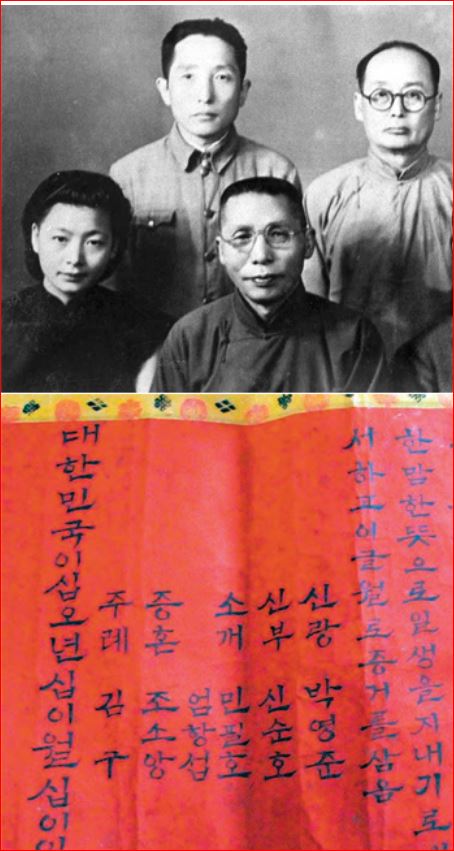 한맘한뜻으로일생을지내기로
서하고이글월로증거를삼음
신랑 박영준
신부 신순호
소개 민필호
엄항섭
증혼 조소앙
주례 김구
대한민국이십오년십이월십이